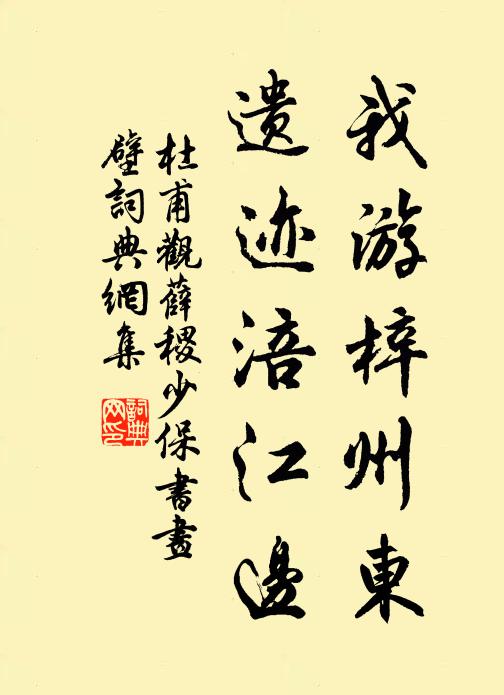 我游梓州東
遺迹涪江邊
杜甫觀薛稷少保書畫
壁詞典網集
詞典
网印